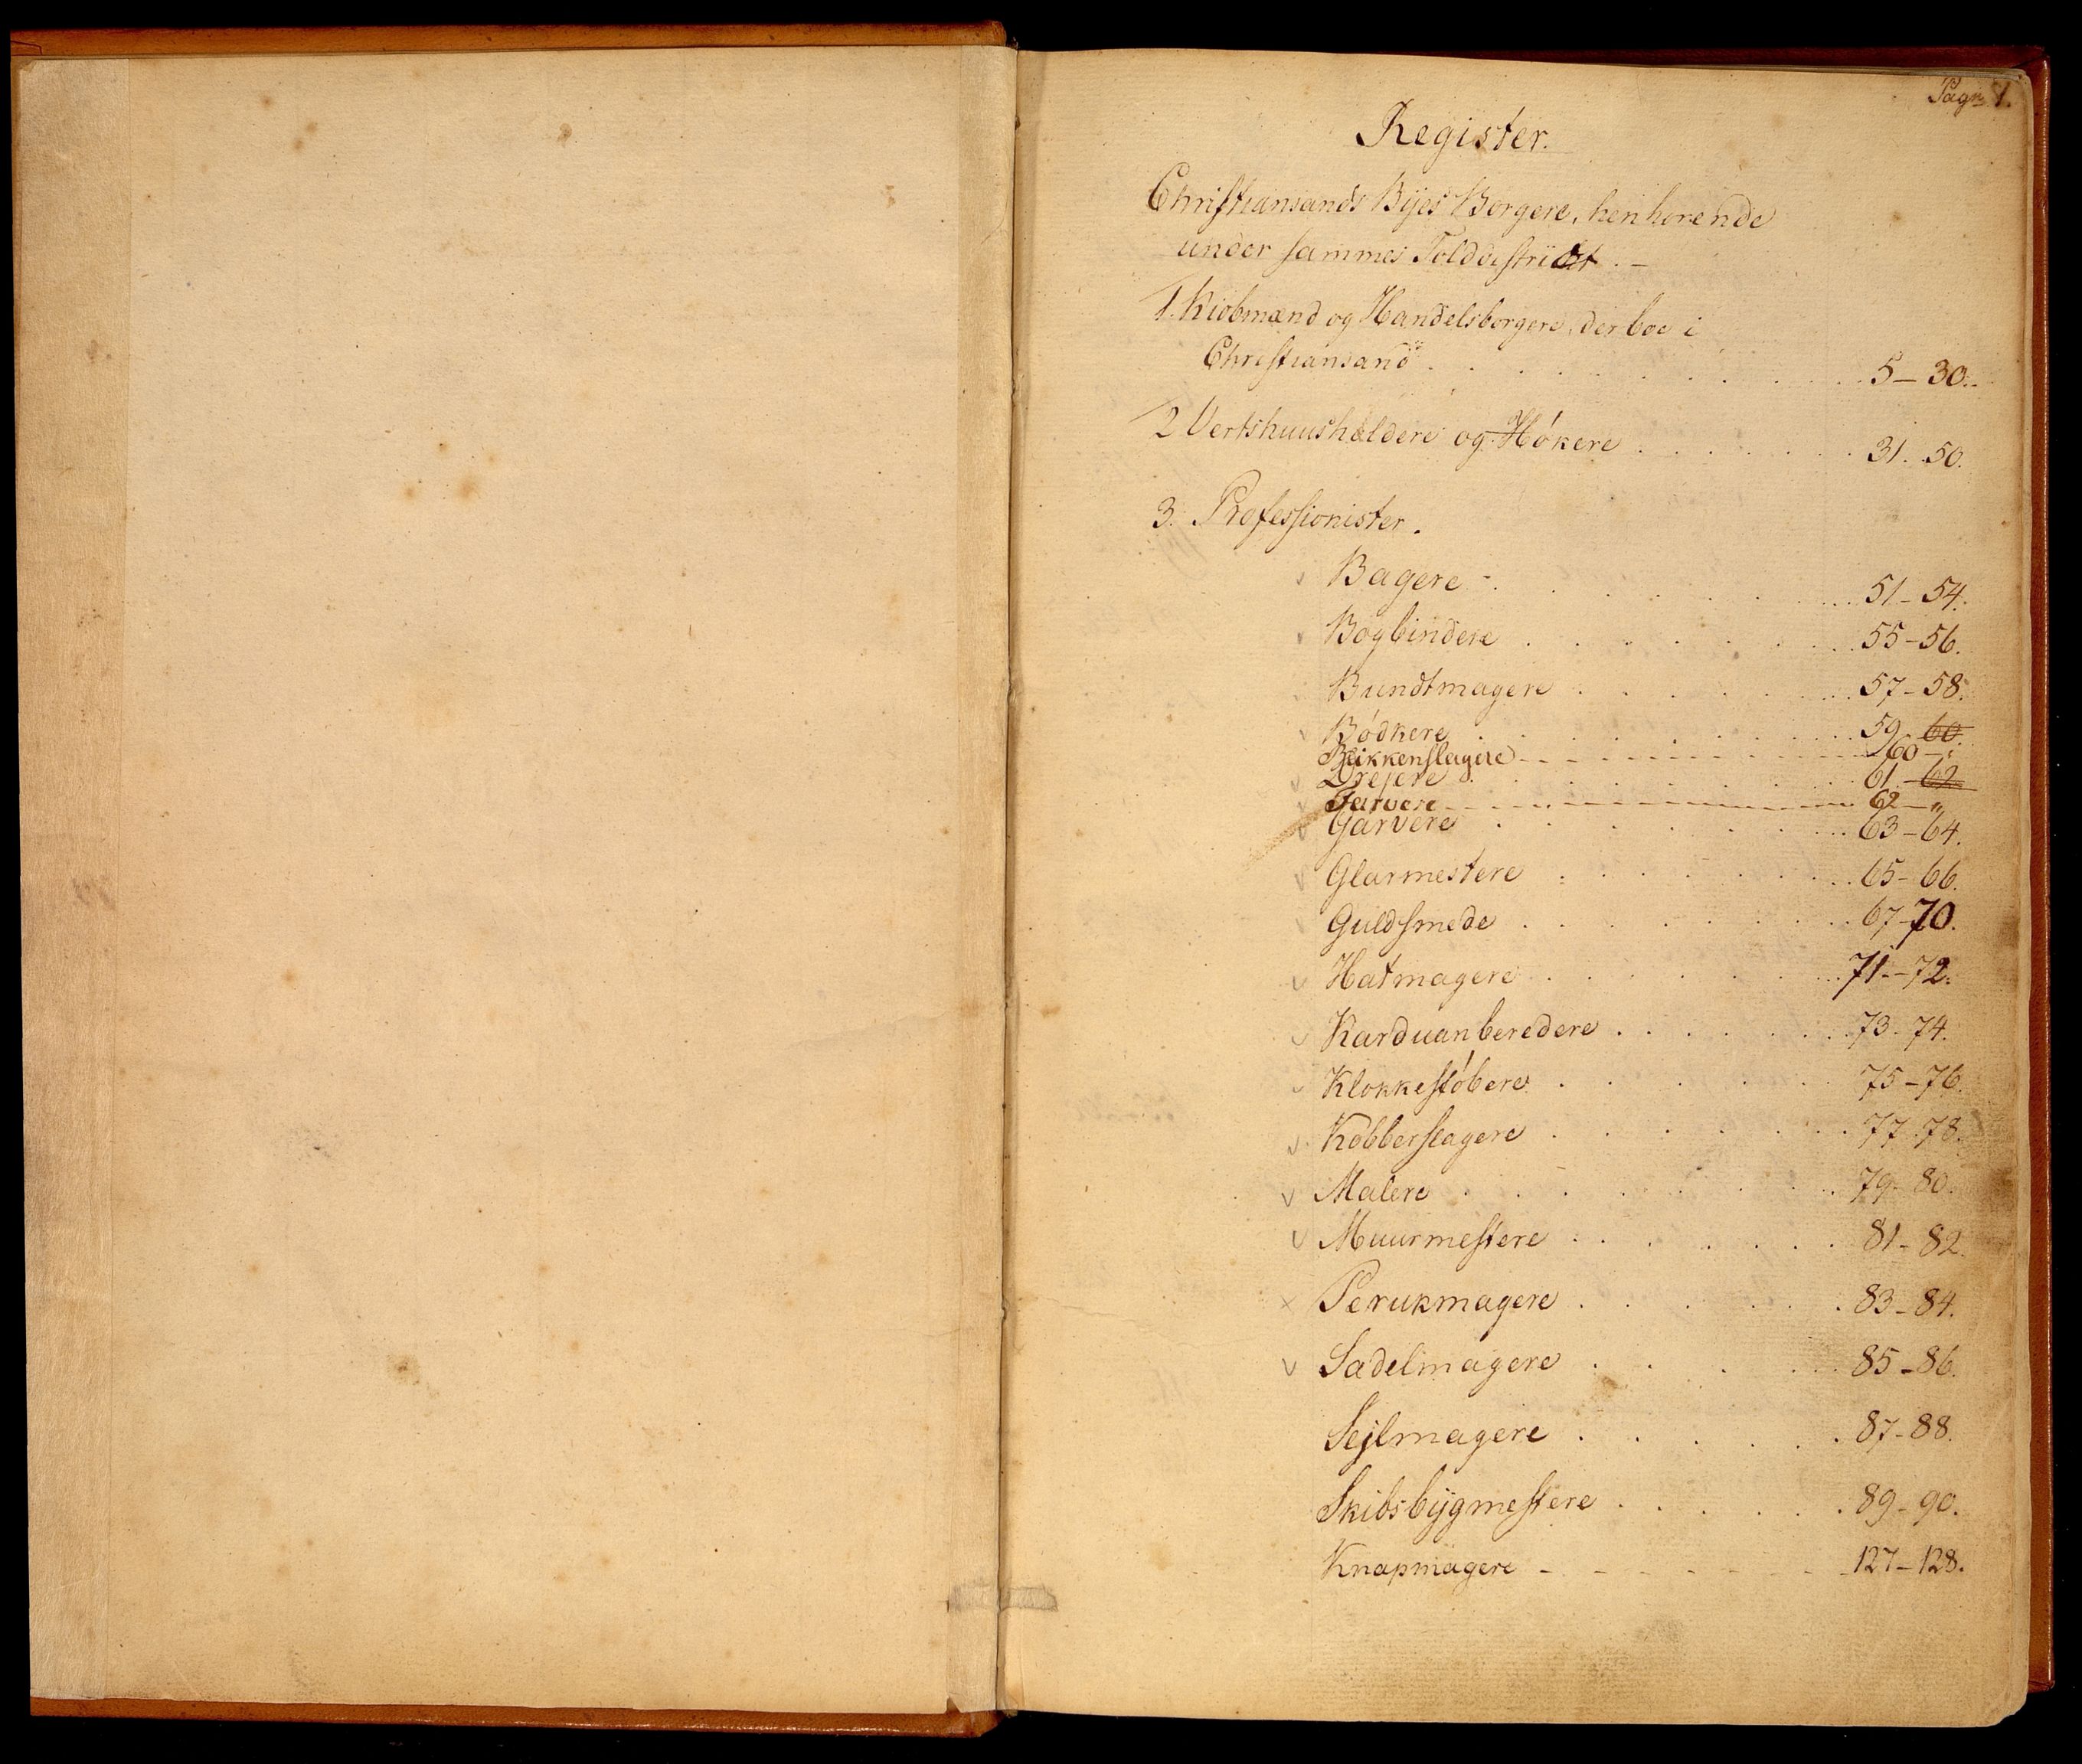 Pag: 1.
Register.
Christiansands Byes Borgere, henhorende
under sammes Tolddistrict . –
1. Kiobmænd og Handelsborgere, der boe i
Christiansand . . . . . . . . . 5 – 30.
2 Vertshuusholdere og Hökere . . . . . . . 31. 50.
3. Professionister.
Bagere . . . . . . . 51 – 54.
Bogbindere . . . . . . . 55 – 56.
Bundtmagere . . . . . . . 57 – 58.
Bödkere . . . . . . . 59 – 60.
Blikkenslagere – – – – – – 60 – „
Drejere . . . . . . . 61 – 62
Farvere – – – – – – 62 – „
Garvere . . . . . . . 63 – 64.
Glarmestere . . . . . . . 65 – 66.
Guldsmede . . . . . . . 67 – 70.
Hatmagere . . . . . . . 71 – 72.
Karduanberedere . . . . . . . 73 – 74.
Klokkestöbere . . . . . . . 75 – 76.
Kobberslagere . . . . . . . 77 – 78.
Malere . . . . . . . 79 – 80.
Muurmestere . . . . . . . 81 – 82.
Perukmagere . . . . . . . 83 – 84.
Sadelmagere . . . . . . . 85 – 86.
Sejlmagere . . . . . . . 87 – 88.
Skibsbygmestere . . . . . . . 89 – 90.
Knapmagere – – – – – – 127 – 128.